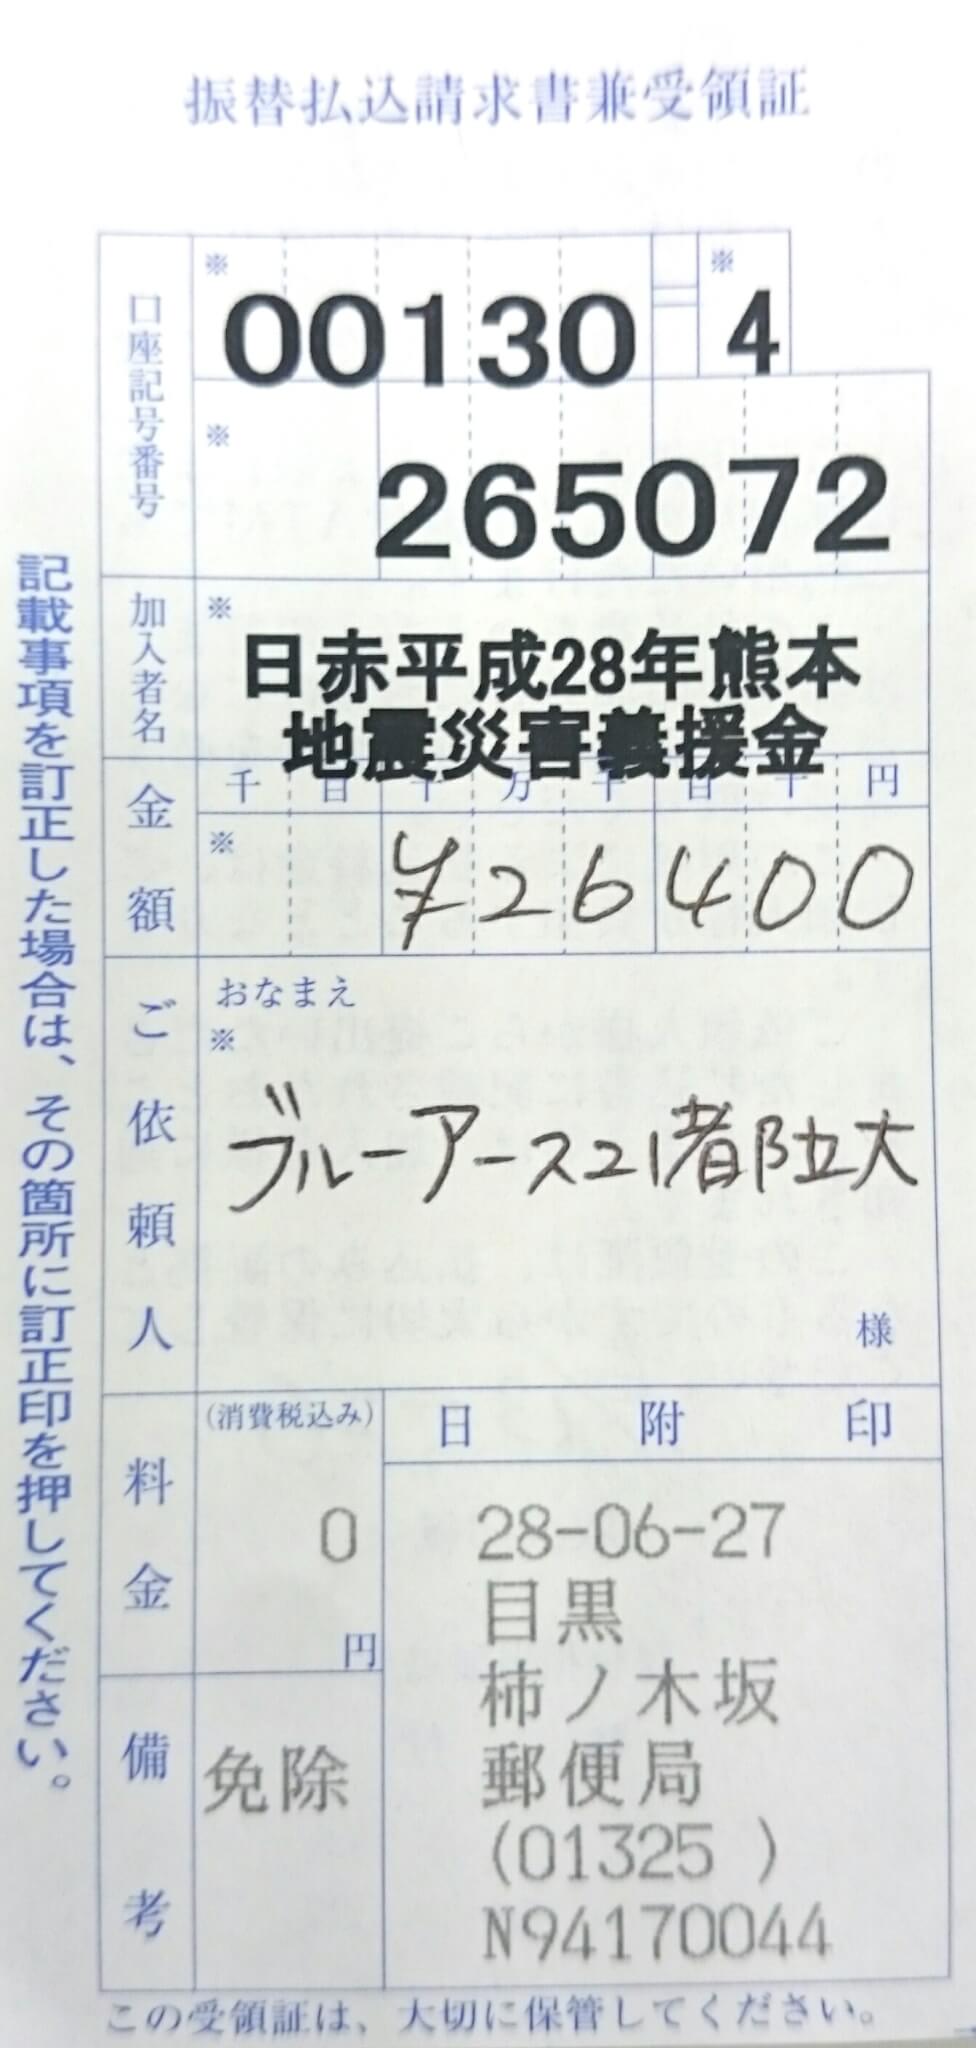 振替払込請求書兼受領証
口座記号番号
※
※
00130 4
※
265072
加入者名
※
日赤平成28年熊本
地震災害義援金
金額
千 百 十 万 千 百 十 円
※
¥26400
ご依頼人
おなまえ
※
ブルーアース21都立大
様
料金
(消費税込み)
0
円
日附印
28-06-27
目黒
柿ノ木坂
郵便局
(01325 )
N94170044
備考
免除
記載事項を訂正した場合は、その箇所に訂正印を押してください。
この受領証は、大切に保管してください。